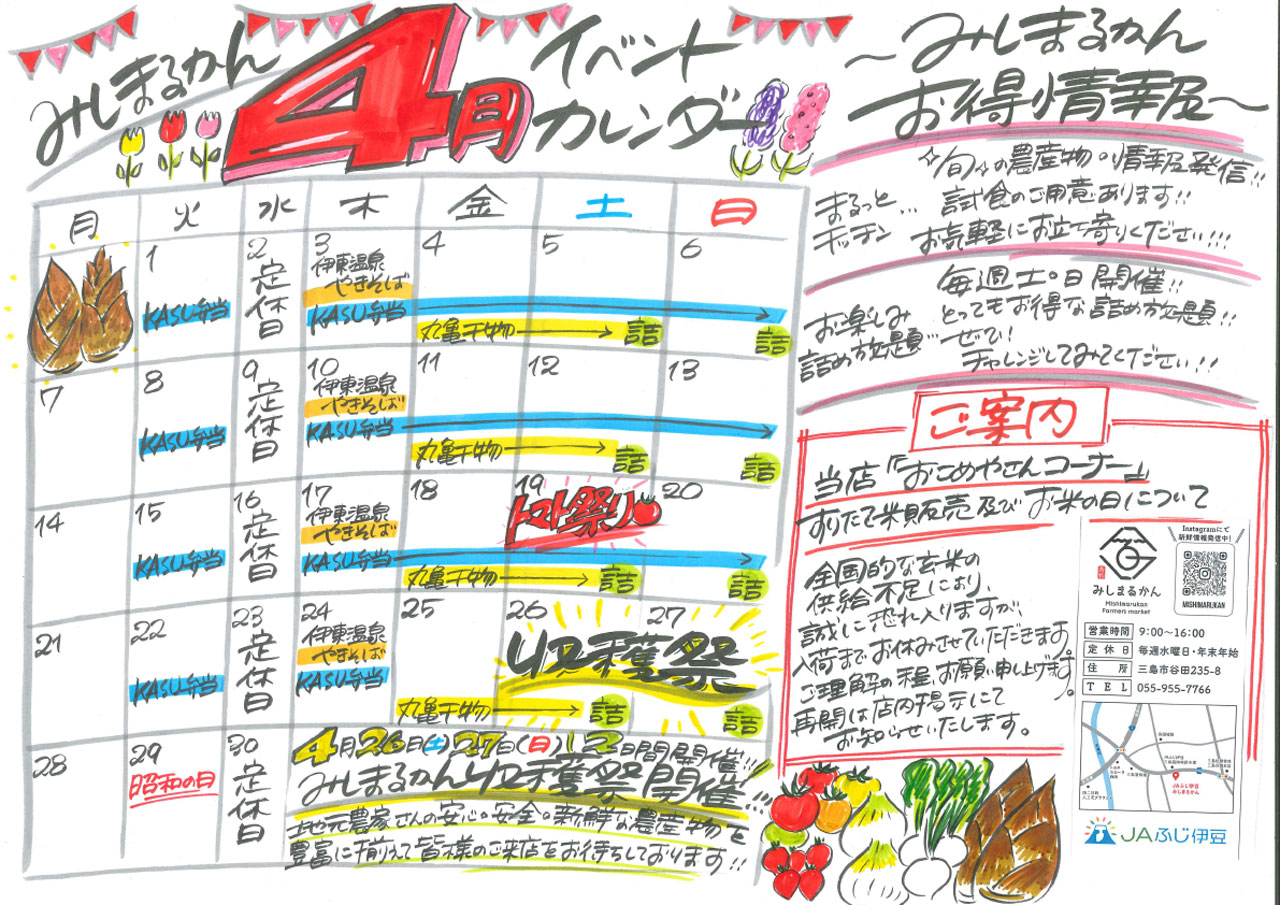 みしまるかん
4月
イベント
カレンダー
月 火 水 木 金 土 日
1
KASU弁当
2
定休日
3
伊東温泉
やきそば
KASU弁当
4
丸亀干物
5
詰
6
詰
7
8
KASU弁当
9
定休日
10
伊東温泉
やきそば
KASU弁当
11
丸亀干物
12
詰
13
詰
14
15
KASU弁当
16
定休日
17
伊東温泉
やきそば
KASU弁当
18
丸亀干物
19
トマト祭り
詰
20
詰
21
22
KASU弁当
23
定休日
24
伊東温泉
やきそば
KASU弁当
25
丸亀干物
26
27
収穫祭
詰
詰
28
29
昭和の日
30
定休日
4月26日(土)27日(日)2日間開催!!
みしまるかん収穫祭開催!!!
地元農家さんの安心・安全・新鮮な農産物を
豊富に揃えて皆様のご来店をお待ちしております!!
〜みしまるかん
お得情報〜
まるっと
キッチン…
旬の農産物・情報発信!!
試食のご用意あります!!
お気軽にお立ち寄りください!!!
お楽しみ
詰め放題…
毎週土・日開催!!
とってもお得な詰め放題!!
ぜひ!
チャレンジしてみてください!!
ご案内
当店『おこめやさんコーナー』
すりたて米販売及びお米の日について
全国的な玄米の
供給不足により、
誠に恐れ入りますが
入荷までお休みさせていただきます。
ご理解の程、お願い申し上げます。
再開は店内掲示にて
お知らせいたします。
みしまるかん
Mishimarukan
Farmers market
Instagramにて
新鮮情報発信中!
MISHIMARUKAN
営業時間 9:00〜16:00
定休日 毎週水曜日・年末年始
住所 三島市谷田235-8
TEL 055-955-7766
JAふじ伊豆
みしまるかん
JAふじ伊豆